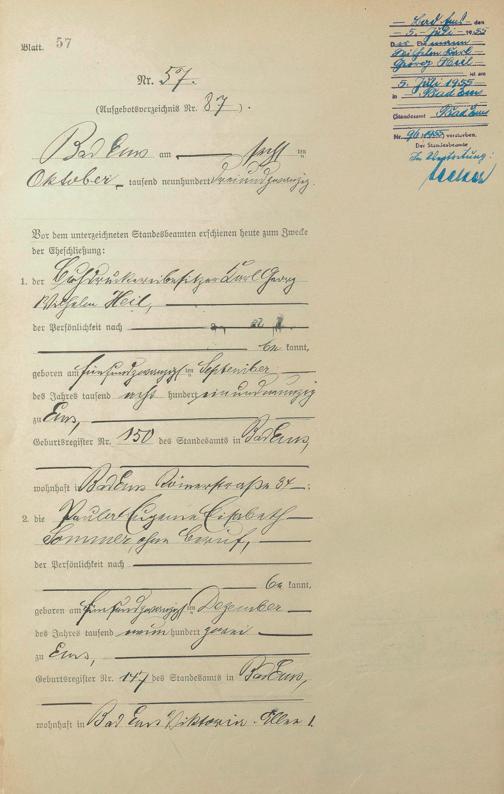 Blatt. 57
Nr. 57.
(Aufgebotsverzeichnis Nr. 87).
Bad Ems am sechsten
Oktober tausend neunhundert dreiundzwanzig.
Vor dem unterzeichneten Standesbeamten erschienen heute zum Zwecke
der Eheschließung:
1. der Buchdruckereibesitzer Karl Georg
Wilhelm Heil,
der Persönlichkeit nach
be kannt,
geboren am fünfundzwanzigsten September
des Jahres tausend acht hundert einundneunzig
zu Ems,
Geburtsregister Nr. 150 des Standesamts in Bad Ems,
wohnhaft in Bad Ems Römerstraße 34.
2. die Eugenie Elisabeth
Sommer, ohne Beruf,
der Persönlichkeit nach
be kannt,
geboren am fünfundzwanzigsten Dezember
des Jahres tausend neun hundert zwei
zu Ems,
Geburtsregister Nr. 147 des Standesamts in Bad Ems,
wohnhaft in Bad Ems Viktoria-Allee 1.
Bad Ems den
5. Juli 1955
Der Ehemann
Wilhelm Karl
Georg Heil
ist am
5. Juli 1955
in Bad Ems
(Standesamt Bad Ems
Nr. 96/1955) verstorben.
Der Standesbeamte
In Vertretung: